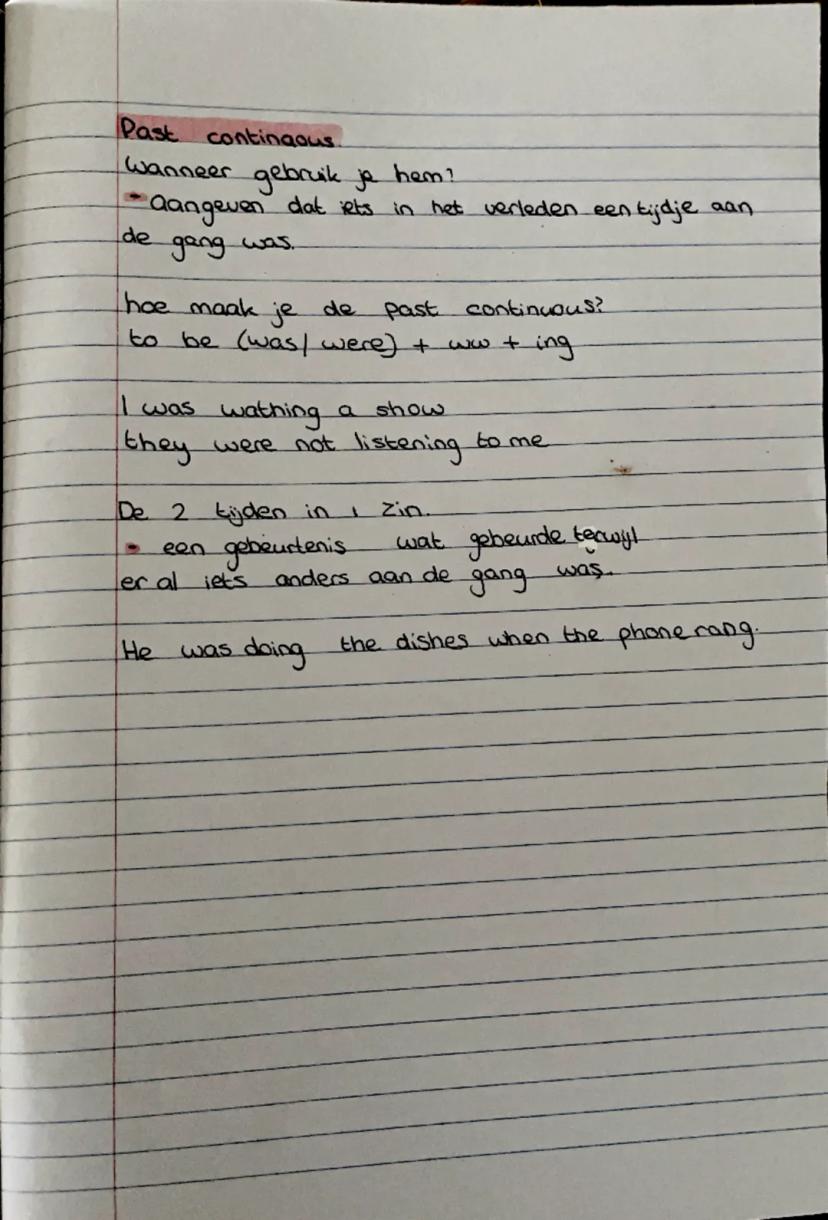 Past continuous.
Wanneer gebruik je hem?
- Aangeven dat iets in het verleden een tijdje aan
de gang was.
hoe maak je de past continuous?
to be (was/were) + ww + ing
I was wathing a show
they were not listening to me
De 2 tijden in 1 zin.
- een gebeurtenis wat gebeurde terwijl
er al iets anders aan de gang was.
He was doing the dishes when the phone rang.